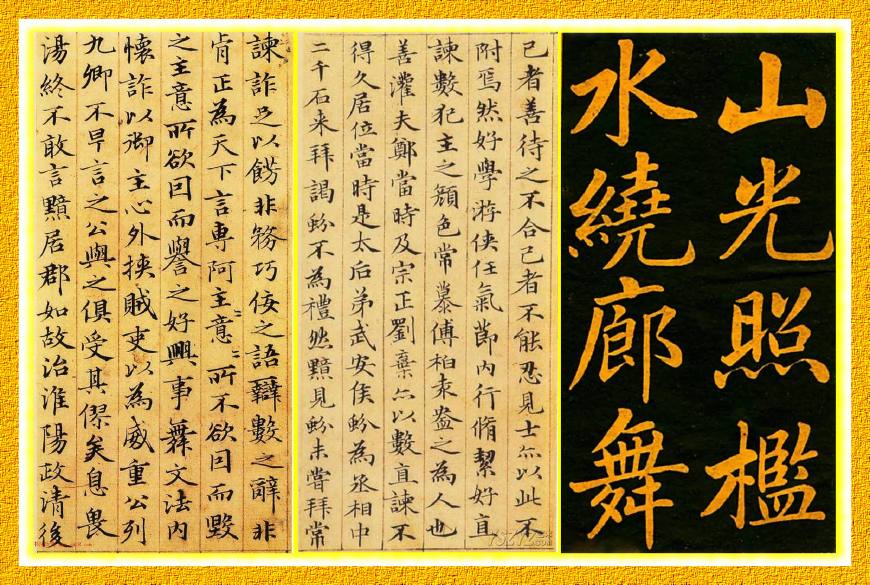 山光照檻
水繞廊舞
己者善待之不合己者不能忍見士亦以此不
附焉然好學游俠任氣節內行脩絜好直
諫數犯主之顏色常慕傅柏袁盎之為人也
善灌夫鄭當時及宗正劉棄亦以數直諫不
得久居位當時是太后弟武安侯蚡為丞相中
二千石来拜謁蚡不為禮然黯見蚡未嘗拜常
諫詐足以飾非務巧佞之語辯數之辭非
肯正為天下言專阿主〻意〻所不欲因而毀
之主意所欲因而譽之好興事舞文法內
懷詐以御主心外挾賊吏以為威重公列
九卿不早言之公與之俱受其僇矣息畏
湯終不敢言黯居郡如故治淮陽政清後